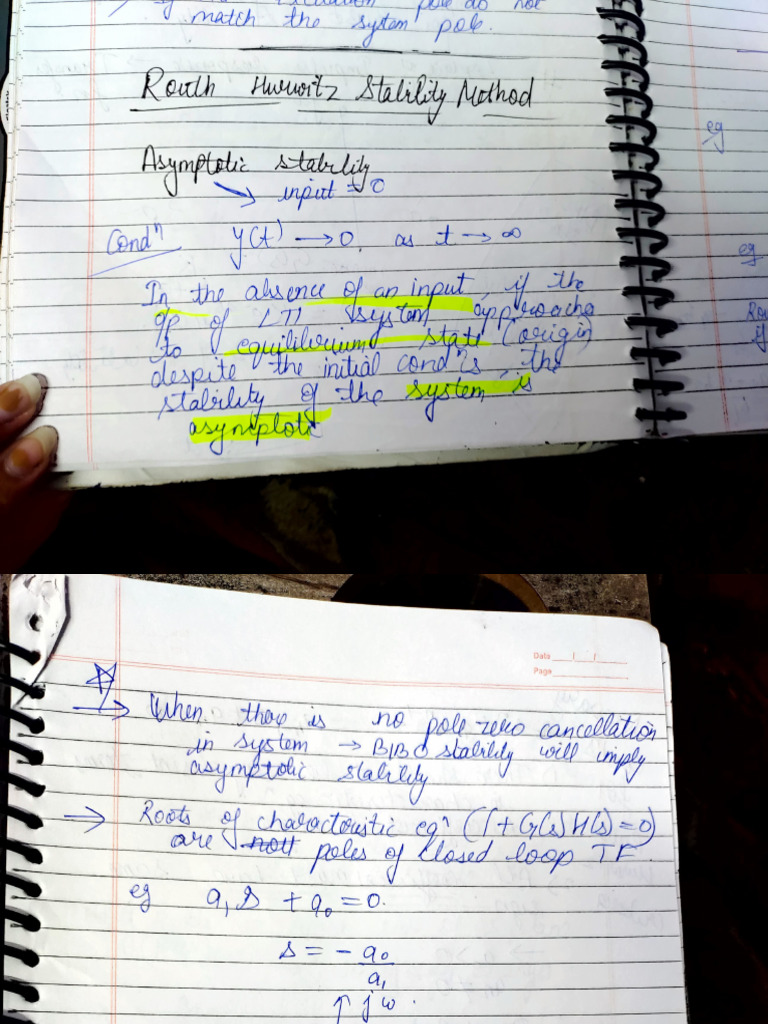 match the system pole.
Routh Hurwitz Stability Method
Asymptotic stability
input = 0
Condⁿ y(t) → 0, as t → ∞
In the absence of an input, if the
op of LTI system approache
to equilibrium state (origin
despite the initial condⁿs, the
stability of the system is
asymptotic
eg
eg
Rou
if
Date __/__/__
Page
→ When there is no pole zero cancellation
in system → BIBO stability will imply
asymptotic stability
→ Roots of charactoristic eqⁿ (1 + G(s) H(s) = 0)
are poles of closed loop TF.
eg a₁ s + a₀ = 0.
s = - a₀
a₁
↑ jω.